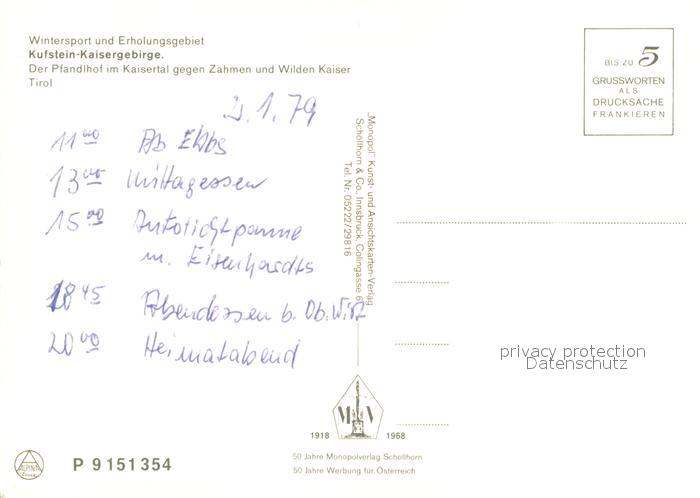 Wintersport und Erholungsgebiet
Kufstein-Kaisergebirge.
Der Pfandlhof im Kaisertal gegen Zahmen und Wilden Kaiser
Tirol
BIS ZU 5
GRUSSWORTEN
ALS
DRUCKSACHE
FRANKIEREN
1.79
11 00 Ab Ebbs
13 00 Mittagessen
15 00 Autolichtpanne
m. Eisenhardts
18 45 Abendessen b. Ob. Wirt
20 00 Heimatabend
„Monopol" Kunst- und Ansichtskarten-Verlag
Schöllhorn & Co., Innsbruck, Colingasse 6
Tel. Nr. 05222/29816
privacy protection
Datenschutz
M V
1918 1968
ALPINA
P 9 151 354
50 Jahre Monopolverlag Schöllhorn
50 Jahre Werbung für Österreich